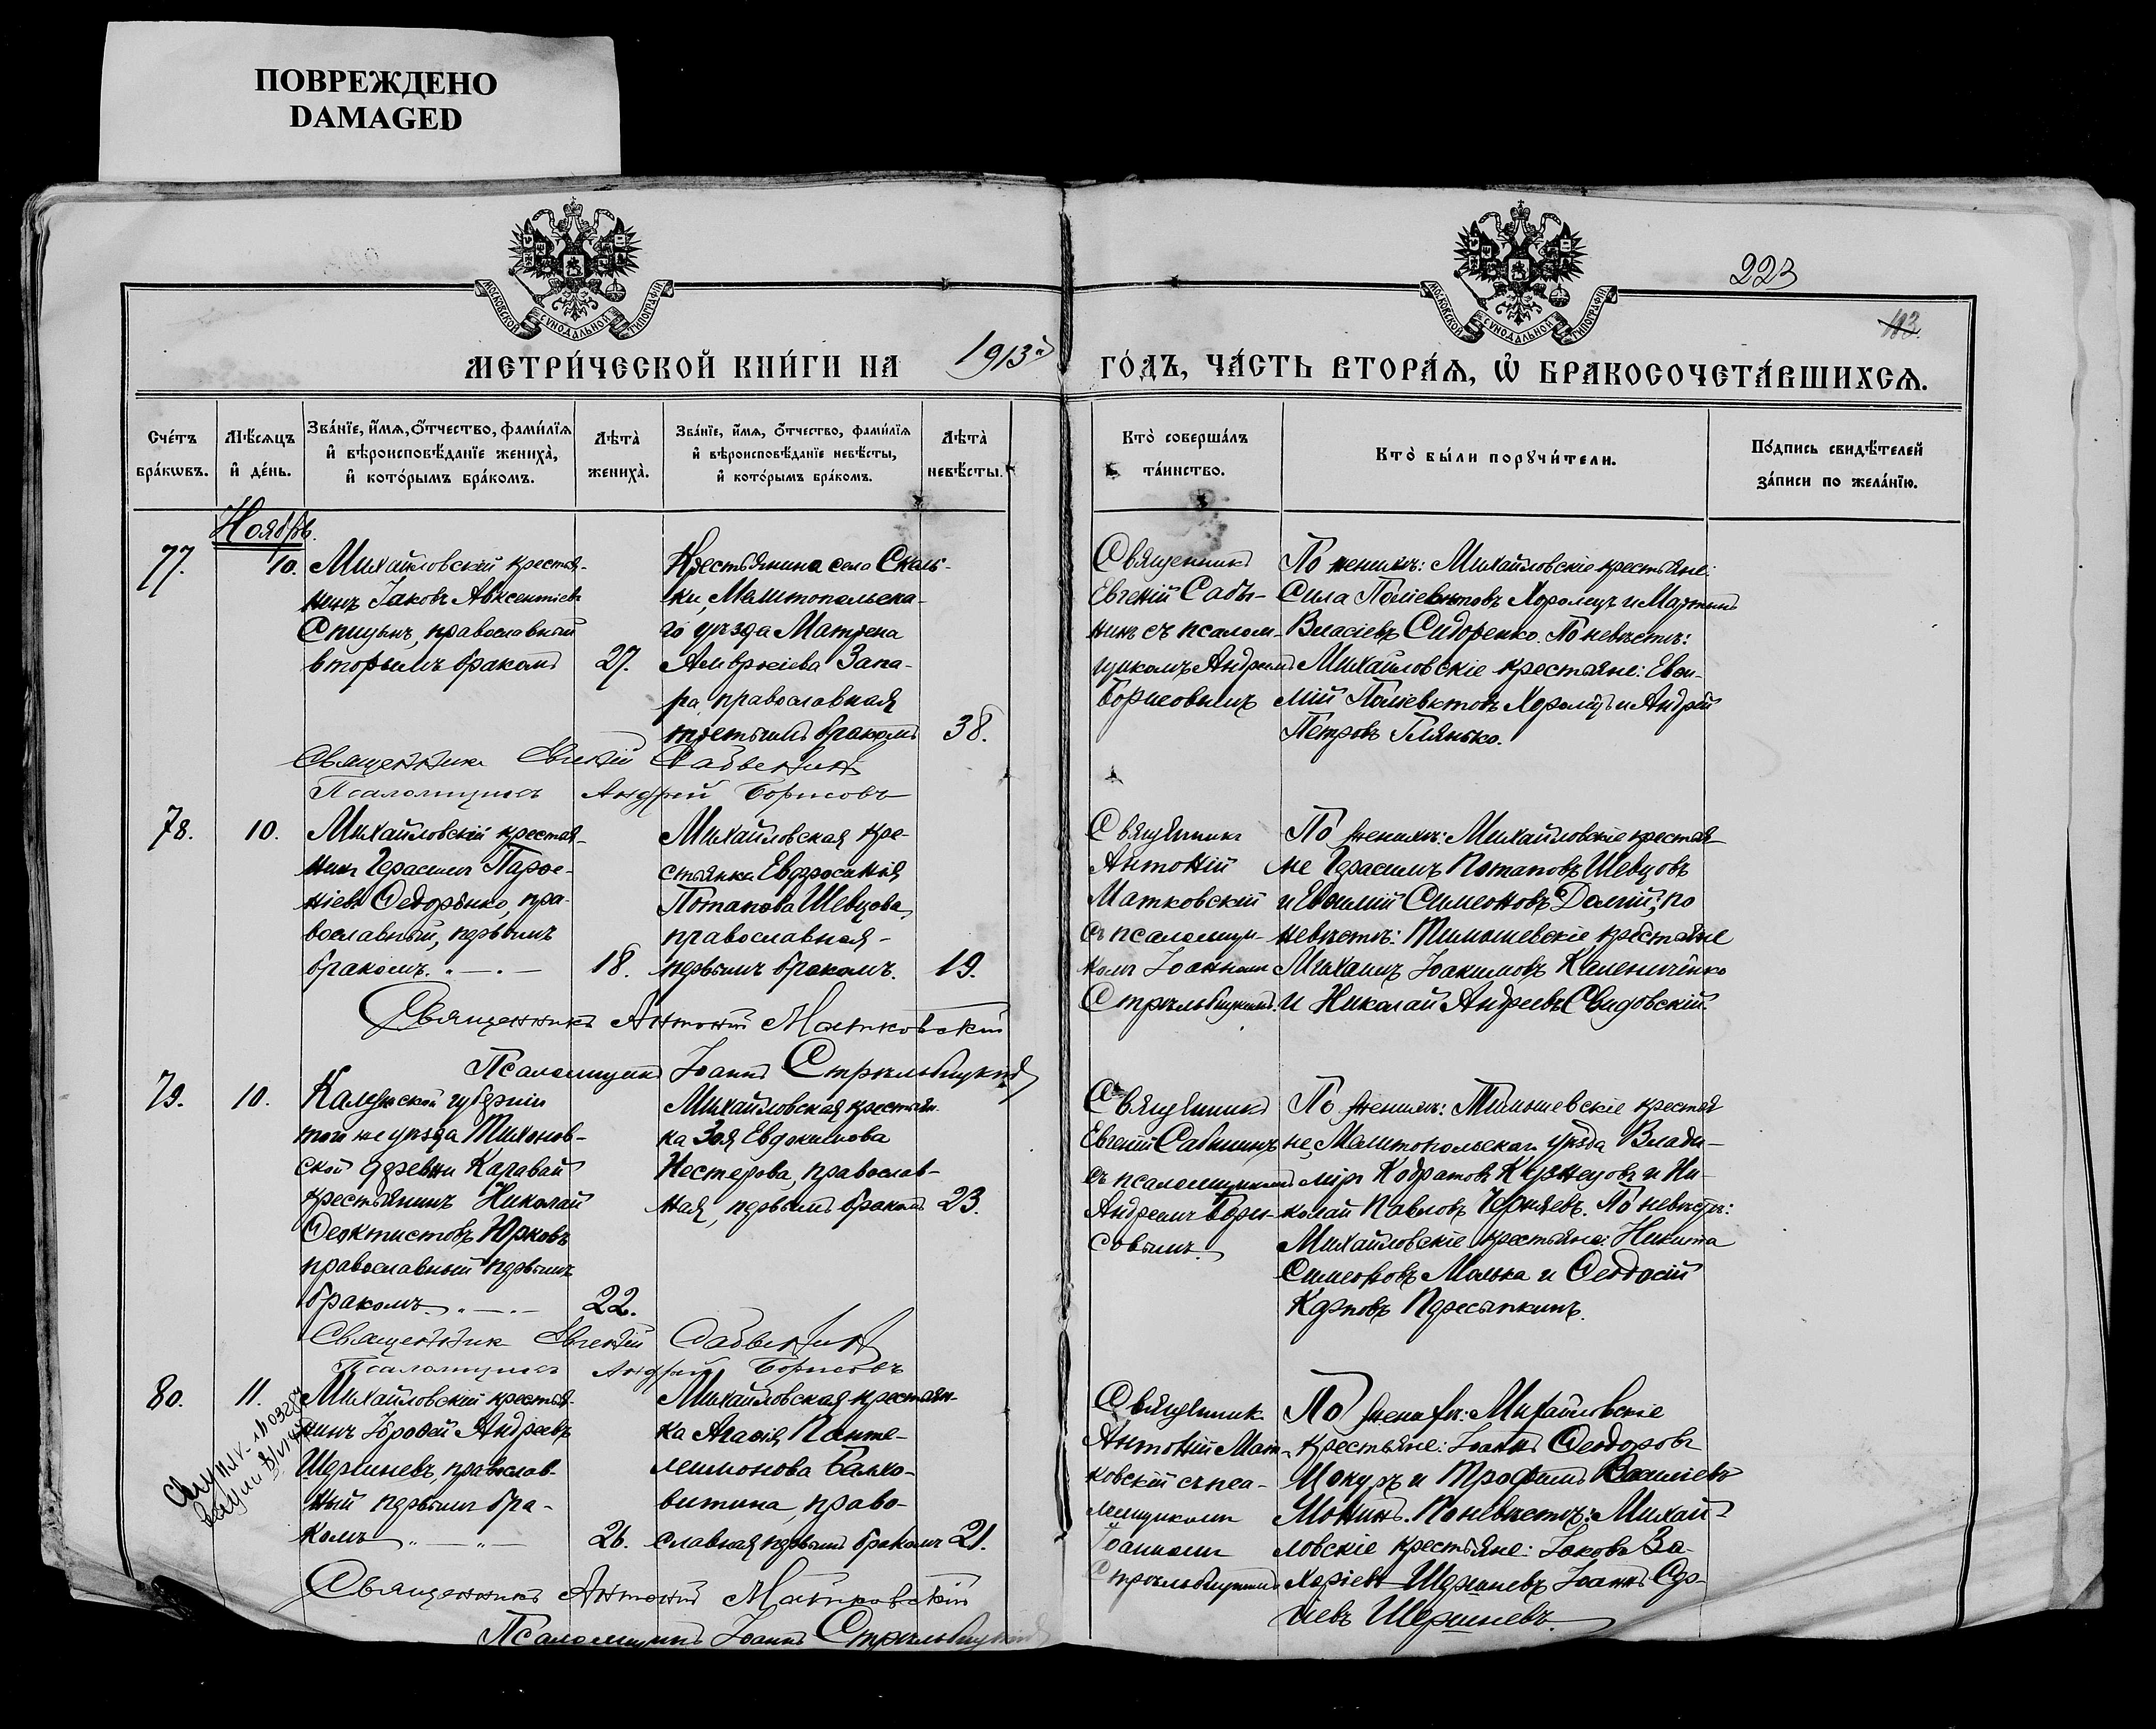 ПОВРЕЖДЕНО
DAMAGED
МОСКОВСКОЙ СѴНОДАЛЬНОЙ ТИПОГРАФІИ
МОСКОВСКОЙ СѴНОДАЛЬНОЙ ТИПОГРАФІИ
223
113.
МЕТРИ́ЧЕСКОЙ КНИ́ГИ НА 1913й ГО́ДЪ, ЧА́СТЬ ВТОРА́Ѧ, Ѡ БРАКОСОЧЕТА́ВШИХСѦ.
Сче́тъ
бра́кѡвъ.
Мѣ́сѧцъ
и҆ де́нь.
Зва́нїе, и҆́мѧ, о҆́тчество, фами́лїѧ
и҆ вѣроисповѣ́данїе жениха̀,
и҆ кото́рымъ бра́комъ.
Лѣ́та̀
жениха̀.
Зва́нїе, и҆́мѧ, о҆́тчество, фами́лїѧ
и҆ вѣроисповѣ́данїе невѣ́сты,
и҆ кото́рымъ бра́комъ.
Лѣ́та̀
невѣ́сты.
Кто̀ соверша́лъ
та́инство.
Кто̀ бы́ли порꙋчи́тели.
По́дпись свидѣ́телей
за́писи по жела́нїю.
Ноябрь.
77.
10.
Михайловскій крестья-
нинъ Іаковъ Авксентіевъ
Спицынъ, православный
вторымъ бракомъ
27.
Крестьянина село Скель-
ки, Мелитопольска-
го уѣзда Матрена
Амвросіева Запа-
ра, православная
третьимъ бракомъ
38.
Священникъ
Евгеній Сабы-
нинъ съ псалом-
щикомъ Андреемъ
Борисовымъ
По женихѣ: Михайловскіе крестьяне:
Сила Поліевктовъ Хоролецъ и Мартынъ
Власіевъ Сидоренко. По невѣстѣ:
Михайловскіе крестьяне: Евѳи-
мій Поліевктовъ Хоролецъ и Андрей
Петровъ Глянько.
Священникъ Евгеній
Псаломщикъ Андрей Борисовъ
78.
10.
Михайловскій крестья-
нинъ Герасимъ Парѳе-
ніевъ Ѳедоренко, пра-
вославный, первымъ
бракомъ.
18.
Михайловская кре-
стьянка Евфросинія
Потапова Шевцова,
православная-
первымъ бракомъ.
19.
Священникъ
Антоній
Матковскій
съ псаломщи-
комъ Іоанномъ
Стрѣльбицкимъ.
По женихѣ: Михайловскіе крестья-
не Герасимъ Потаповъ Шевцовъ
и Евѳимій Симеоновъ Долгій; по
невѣстѣ: Тимошевскіе крестьяне
Михаилъ Іоакимовъ Калениченко
и Николай Андреевъ Свидовскій.
Священникъ Антоній Матковскій
Псаломщикъ Іоаннъ Стрѣльбицкій
79.
10.
Калужской губерніи
того же уѣзда Тихонов-
ской деревни Каравай
крестьянинъ Николай
Ѳеоктистовъ Юрковъ
православный первымъ
бракомъ.
22.
Михайловская крестьян-
ка Зоя Евдокимова
Нестерова, православ-
ная, первымъ бракомъ
23.
Священникъ
Евгеній Сабынинъ
съ псаломщикомъ
Андреемъ Бори-
совымъ.
По женихѣ: Тимошевскіе крестья
не, Мелитопольскаго уѣзда Влади-
міръ Кодратовъ Кузнецовъ и Ни-
колай Павловъ Черняевъ. По невѣстѣ:
Михайловскіе крестьяне: Никита
Симеоновъ Малька и Ѳеодосій
Карповъ Пересыпкинъ.
Священникъ Евгеній
Псаломщикъ Андрей Борисовъ
80.
11.
Михайловскій крестья-
нинъ Іеровей Андреевъ
Шершневъ, православ-
ный первымъ бра-
комъ
26.
Михайловская крестьян-
ка Агаѳія Панте-
леимонова Балко-
витина, право-
славная первымъ бракомъ
21.
Священникъ
Антоній Мат-
ковскій съ пса-
ломщикомъ
Іоанномъ
Стрѣльбицкимъ
По женихѣ: Михайловскіе
крестьяне: Іоаннъ Ѳеодоровъ
Цокуръ и Трофимъ Василіевъ
Мокинъ. По невѣстѣ: Михай-
ловскіе крестьяне: Іаковъ За-
харіевъ Шершневъ Іоаннъ Сер-
гіевъ Шершневъ.
Священникъ Антоній Матковскій
Псаломщикъ Іоаннъ Стрѣльбицкій